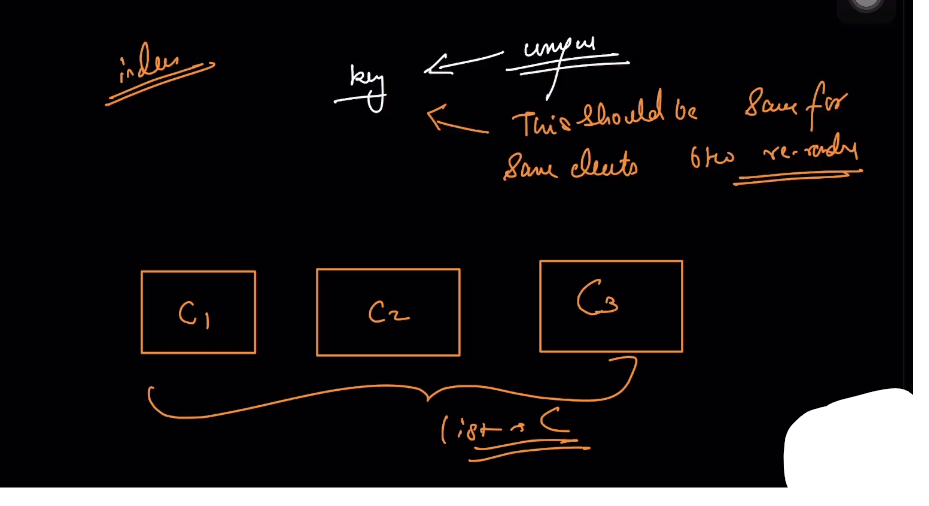 index
key
unique
This should be same for
same elements btw re-render
C1
C2
C3
list → C